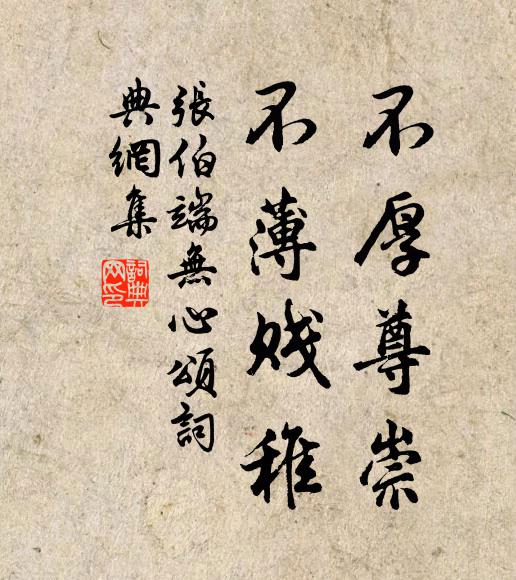 不厚尊崇
不薄賤稚
張伯端無心頌詞
典網集
詞典網印